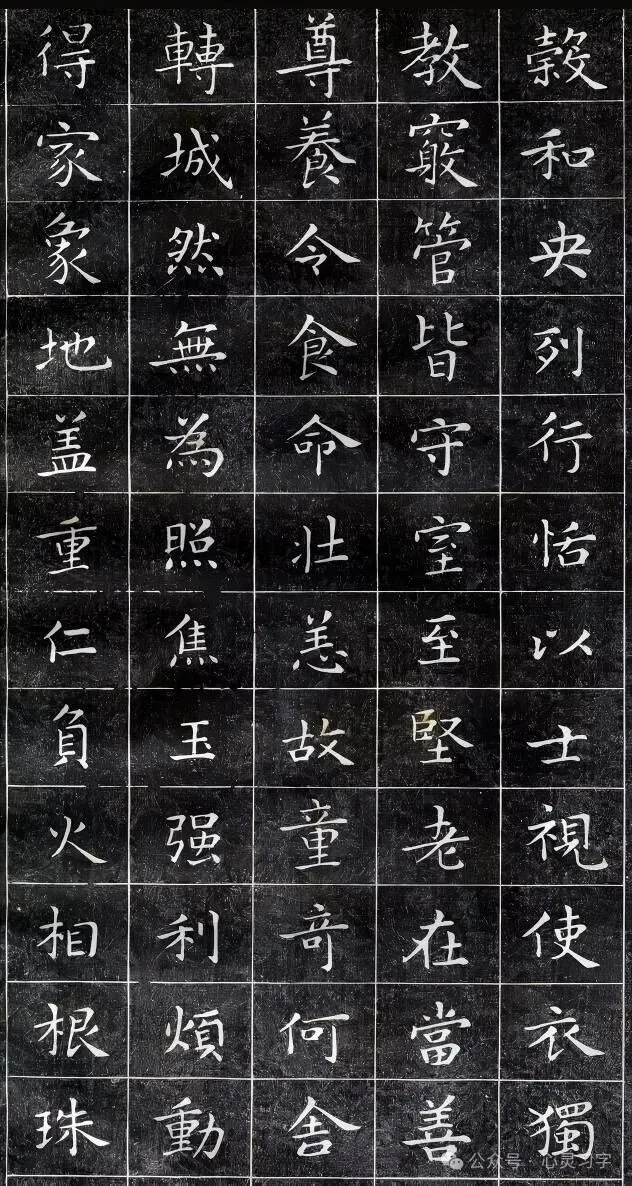 穀和央列行恬以士視使衣獨
教竅管皆守室至堅老在當善
尊養令食命壯恙故童奇何舍
轉城然無為照焦玉强利煩動
得家象地盖重仁負火相根珠
公众号 · 心灵习字